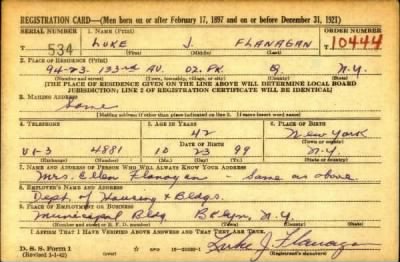 REGISTRATION CARD—(Men born on or after February 17, 1897 and on or before December 31, 1921)
SERIAL NUMBER 1. NAME (Print) ORDER NUMBER
534 LUKE J. FLANAGAN 10444
(First) (Middle) (Last)
2. PLACE OF RESIDENCE (Print)
94-23. 133rd AV. OZ. PK Q N.Y.
(Number and street) (Town, township, village, or city) (County) (State)
[THE PLACE OF RESIDENCE GIVEN ON THE LINE ABOVE WILL DETERMINE LOCAL BOARD
JURISDICTION; LINE 2 OF REGISTRATION CERTIFICATE WILL BE IDENTICAL]
3. MAILING ADDRESS
Same
[Mailing address if other than place indicated on line 2. If same insert word same]
4. TELEPHONE 5. AGE IN YEARS 6. PLACE OF BIRTH
42 New York
DATE OF BIRTH
VI-3 4881 10 23 99 N.Y.
(Exchange) (Number) (Mo.) (Day) (Yr.) (State or country)
7. NAME AND ADDRESS OF PERSON WHO WILL ALWAYS KNOW YOUR ADDRESS
Mrs. Ellen Flanagan - Same as above
8. EMPLOYER'S NAME AND ADDRESS
Dept. of Housing & Bldgs.
9. PLACE OF EMPLOYMENT OR BUSINESS
Municipal Bldg Bklyn, N.Y.
(Number and street or R. F. D. number) (Town) (County) (State)
I AFFIRM THAT I HAVE VERIFIED ABOVE ANSWERS AND THAT THEY ARE TRUE.
D. S. S. Form 1 GPO
(Revised 2-1-42) Luke J. Flanagan
(Registrant's signature)